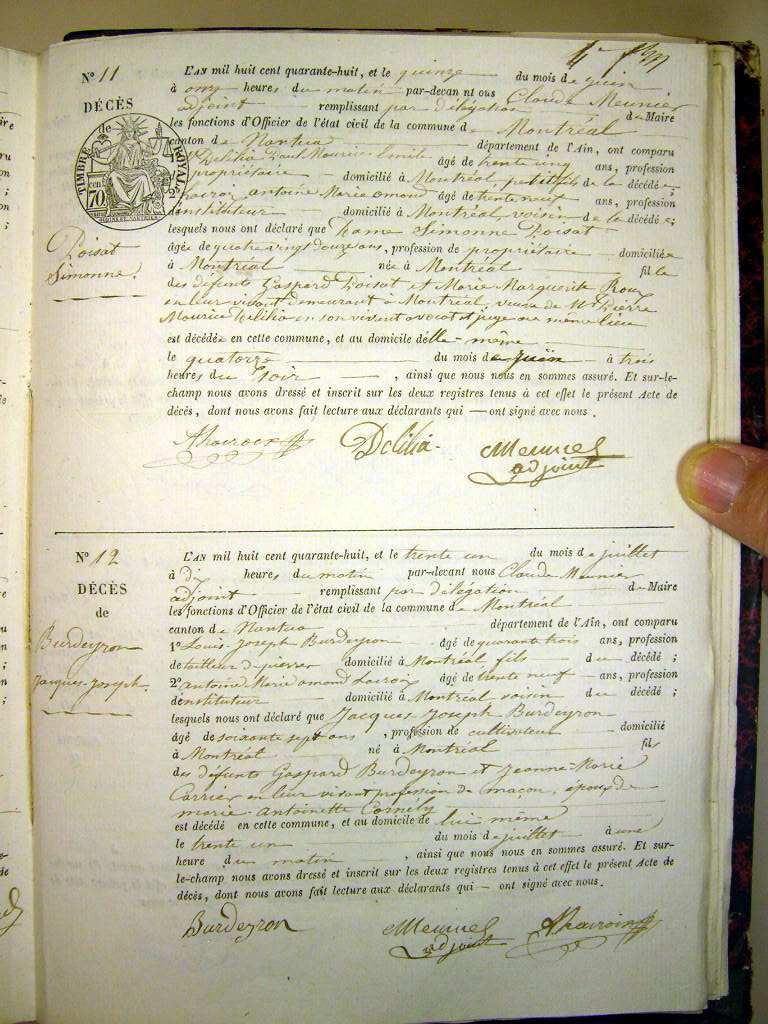 N° 11
DÉCÈS
de
TIMBRE ROYAL
70
Poisat
Simonne.
L'AN mil huit cent quarante-huit, et le quinze du mois de juin
à onze heures du matin par-devant nous Claude Meunier
adjoint remplissant par délégation du Maire
les fonctions d'Officier de l'état civil de la commune de Montréal
canton de Nantua département de l'Ain, ont comparu
Delilia Paul Maurice Emile âgé de trente cinq ans, profession
propriétaire domicilié à Montréal, petit fils de la décédée;
antoine Marie amond âgé de trente neuf ans, profession
d'instituteur domicilié à Montréal voisin de la décédée;
lesquels nous ont déclaré que Dame Simonne Poisat
âgée de quatre vingt douze ans, profession de propriétaire domiciliée
à Montréal née à Montréal fille
des défunts Gaspard Poisat et Marie Marguerite
en leur vivant demeurant à Montréal, veuve de Mr Pierre
Maurice Delilia en son vivant avocat et juge au même lieu
est décédée en cette commune, et au domicile d'elle-même
le quatorze du mois de juin à trois
heures du soir, ainsi que nous nous en sommes assuré. Et sur-le-
champ nous avons dressé et inscrit sur les deux registres tenus à cet effet le présent Acte de
décès, dont nous avons fait lecture aux déclarants qui — ont signé avec nous.
Delilia Meunier
adjoint
N° 12
DÉCÈS
de
Burdeyron
Jacques-Joseph.
L'AN mil huit cent quarante-huit, et le trente un du mois de juillet
à dix heures du matin par-devant nous Claude Meunier
adjoint remplissant par délégation du Maire
les fonctions d'Officier de l'état civil de la commune de Montréal
canton de Nantua département de l'Ain, ont comparu
1° Louis-Joseph Burdeyron âgé de quarante trois ans, profession
de tailleur de pierres domicilié à Montréal fils du décédé;
2° antoine Marie amond Lacroix âgé de trente neuf ans, profession
d'instituteur domicilié à Montréal voisin du décédé;
lesquels nous ont déclaré que Jacques-Joseph Burdeyron
âgé de soixante sept ans, profession de cultivateur domicilié
à Montréal né à Montréal fils
des défunts Gaspard Burdeyron et Jeanne-Marie
Carrier en leur vivant profession de maçon, époux de
marie Antoinette
est décédé en cette commune, et au domicile de lui même
le trente un du mois de juillet à une
heure du matin, ainsi que nous nous en sommes assuré. Et sur-
le-champ nous avons dressé et inscrit sur les deux registres tenus à cet effet le présent Acte de
décès, dont nous avons fait lecture aux déclarants qui — ont signé avec nous.
Burdeyron Meunier
adjoint